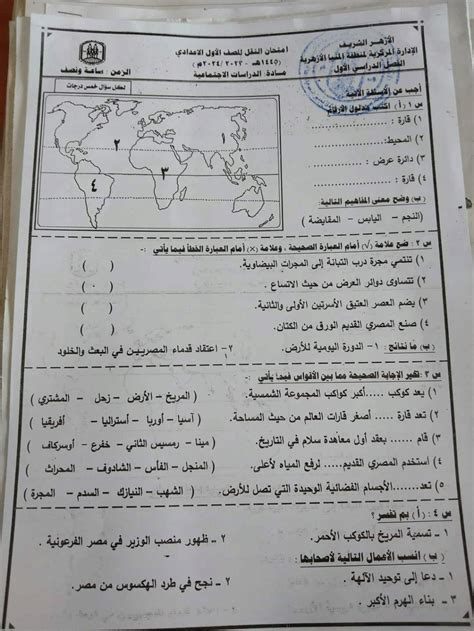 الأزهر الشريف
الإدارة المركزية لمنطقة المنيا الأزهرية
الفصل الدراسي الأول
امتحان النقل للصف الأول الاعدادي
١٤٤٥هـ - ٢٠٢٣ / ٢٠٢٤م
مادة: الدراسات الاجتماعية
الزمن: ساعة ونصف
لكل سؤال خمس درجات
أجب عن الأسئلة الآتية
س١: (أ) اكتب مدلول الأرقام
١) قارة :
٢) المحيط:
٣) دائرة عرض :
٤) قارة :
١
٢
٣
٤
(ب) وضح معنى المفاهيم التالية:
(النجم – اليابس – المقايضة)
س٢: ضع علامة (√) أمام العبارة الصحيحة، وعلامة (×) أمام العبارة الخطأ فيما يأتي :-
١) تنتمي مجرة درب التبانة إلى المجرات البيضاوية. ( )
٢) تتساوى دوائر العرض من حيث الاتساع. ( )
٣) يضم العصر العتيق الأسرتين الأولى والثانية. ( )
٤) صنع المصري القديم الورق من الكتان. ( )
(ب) ما نتائج : ١- الدورة اليومية للأرض. ٢- اعتقاد قدماء المصريين في البعث والخلود
س٣: تخير الإجابة الصحيحة مما بين الأقواس فيما يأتي
١) يعد كوكب ..... أكبر كواكب المجموعة الشمسية. ( المريخ – الأرض – زحل – المشتري )
٢) تعد قارة ..... أصغر قارات العالم من حيث المساحة. ( آسيا – أوربا – أستراليا – أفريقيا )
٣) قام ...... بعقد أول معاهدة سلام في التاريخ. ( مينا – رمسيس الثاني – خفرع – أوسركاف )
٤) استخدم المصري القديم..... لرفع المياه لأعلى. ( المنجل – الفأس – الشادوف – المحراث )
٥) تعد.....الأجسام الفضائية الوحيدة التي تصل للأرض. ( الشهب – النيازك – السدم – المجرة )
س٤: (أ) بم تفسر؟
١- تسمية المريخ بالكوكب الأحمر. ٢ – ظهور منصب الوزير في مصر الفرعونية.
(ب) انسب الأعمال التالية لأصحابها:
١ – دعا إلى توحيد الآلهة. ٢ – نجح في طرد الهكسوس من مصر.
٣ – بناء الهرم الأكبر.